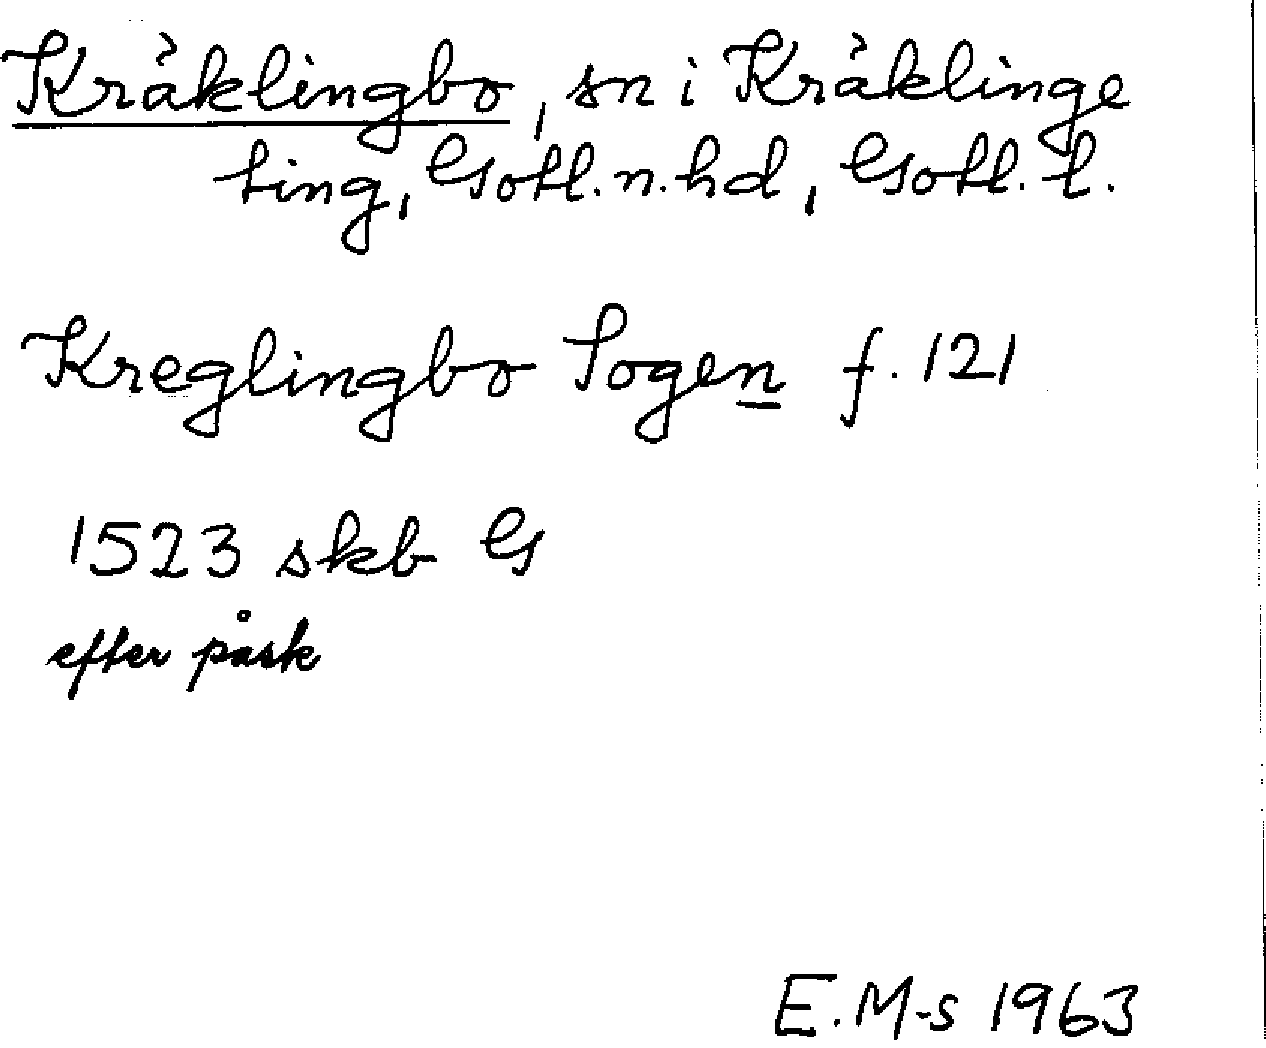 Kräklingbo, sn i Kräklinge
ting, Gotl. n. hd, Gotl. l.
Kreglingbo Sogen f. 121
1523 skb G
efter påsk
E. M-s 1963